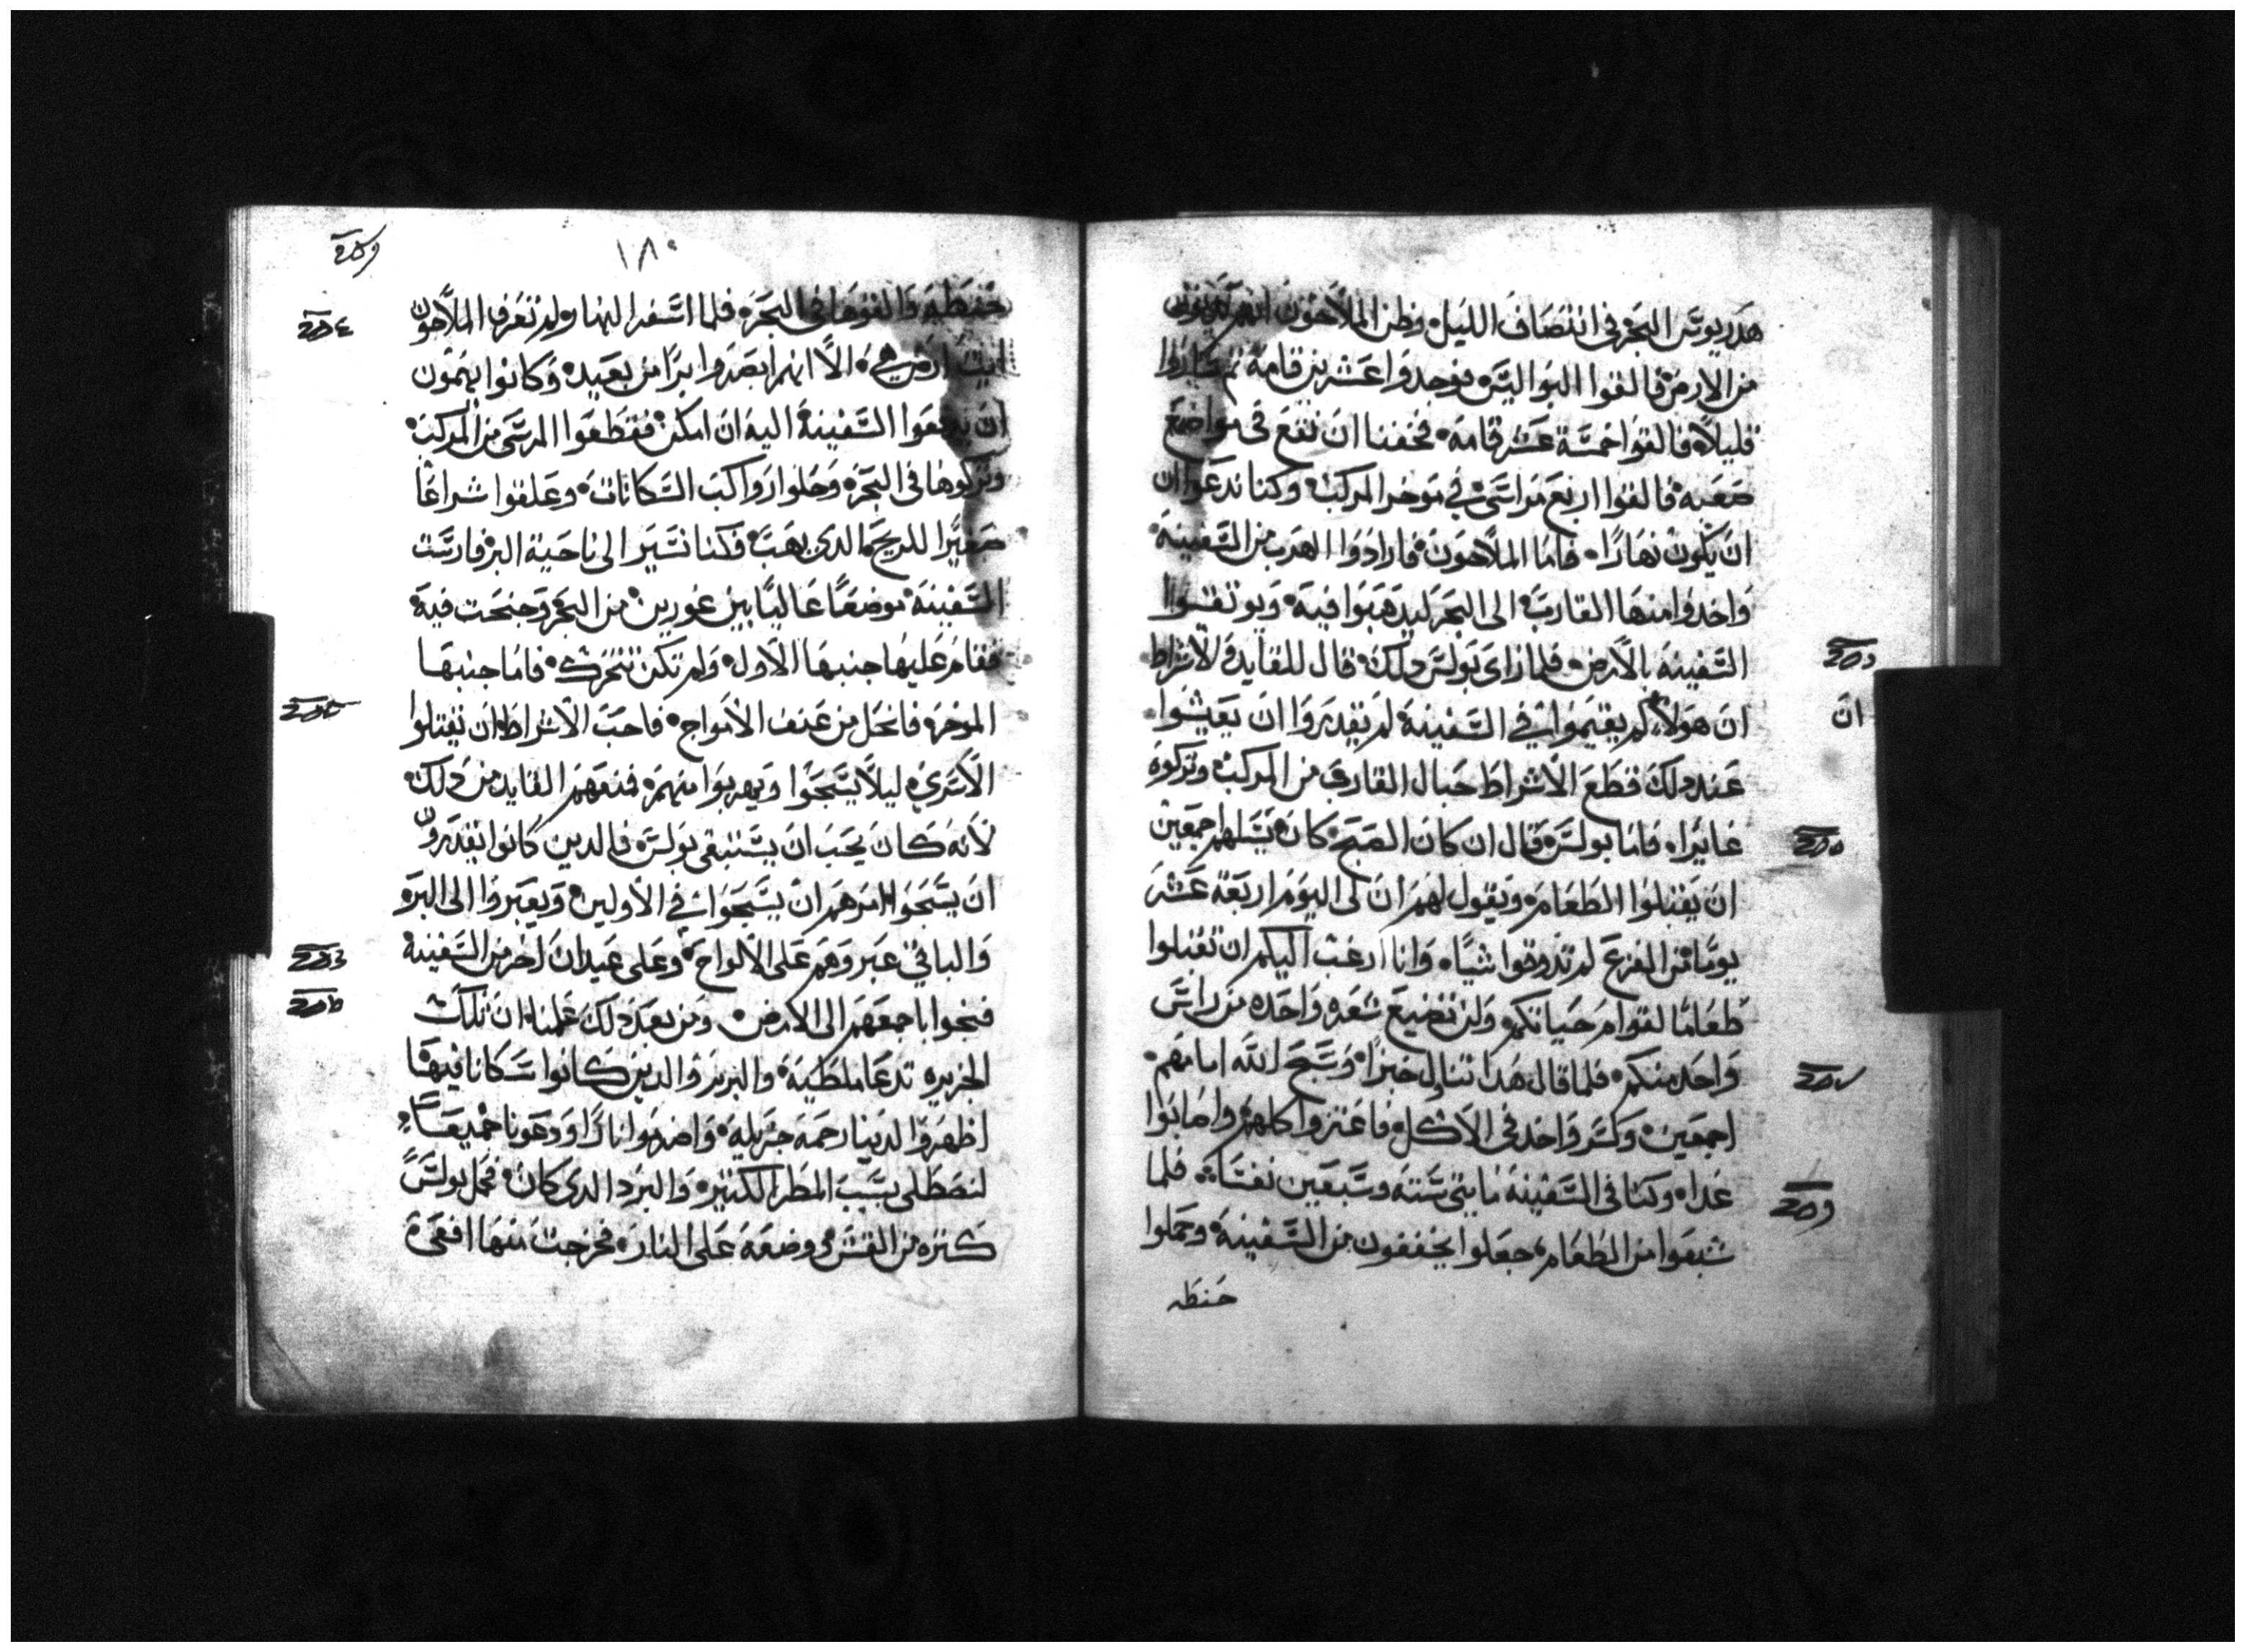 هدريوس البحر في انتصاف الليل وظن الملاحون انهم يدنون
من الارض فالقوا البواليس فوجدوا عشرين قامة ثم ساروا
قليلاً فالقوا خمسة عشر قامه فخفنا ان نقع في مواضع
صعبه فالقوا اربع مراسي في موخر المركب وكنا ندعوا ان
ان يكون نهارًا فاما الملاحون فارادوا الهرب من السفينة
واحدوا منها القارب الى البحر ليدهبوا فيه ويوثقوا
السفينة بالارض فلما راى بولس دلك قال للقايد والاشراط
ان هولاء لم يقيموا في السفينة لم يقدروا ان يعيشوا
ان
عند دلك قطع الاشراط حبال القارب من المركب وتركوه
غايرا فاما بولس قال ان كان الصبح كان يسلهم اجمعين
ان يقبلوا الطعام ويقول لهم ان لى اليوم اربعة عشر
يومًا من الفزع لم تدوقوا شيا وانا ارغب اليكم ان تقبلوا
طعامًا لقوام حياتكم ولن تضيع شعره واحده من راس
واحد منكم فلما قال هدا تناول خبزًا وسبح الله امامهم
اجمعين وكسر واخد في الاكل فاعتزوا كلهم واصابوا
غدا وكنا في السفينة مايتي ستة وسبعين نفسا فلما
شبعوا من الطعام جعلوا يخففون من السفينة وحملوا
حنطه
١٨٠
حنطه والقوها في البحر فلما اسفر النهار لم تعرف الملاحون
ارض هي الا انهم ابصروا برًا من بعيد وكانوا يهمون
ان يدفعوا السفينة اليه ان امكن فقطعوا المرسى من المركب
وتركوها في البحر وحلوا رواكب السكانات وعلقوا شراعًا
صغيرًا للريح الدى يهب فكنا نسير الى ناحية البر فارست
السفينة موضعًا عاليًا بين غورين من البحر وجنحت فيه
فقام عليها جنبها الاول ولم تكن تتحرك فاما جنبها
الموخر فانحل من عنف الامواج فاحب الاشراط ان يقتلوا
الاسرى ليلا يسبحوا ويهربوا منهم فمنعهم القايد من دلك
لانه كان يحب ان يستبقى بولس فالدين كانوا يقدرون
ان يسبحوا امرهم ان يسبحوا في الاولين ويعبروا الى البر
والباقي عبروهم على الالواح وعلى عيدان اخر من السفينة
فنجوا باجمعهم الى الارض ومن بعد دلك علمنا ان تلك
الجزيره تدعا ملطية والبربر والدين كانوا سكانا فيها
اظهروا لدينا رحمة جزيله واضرموا نارًا ودعونا جميعًا
لنصطلى بسبب المطر الكثير والبرد الدى كان فحمل بولس
كثره من القش ووضعه على النار فخرجت منها افعى